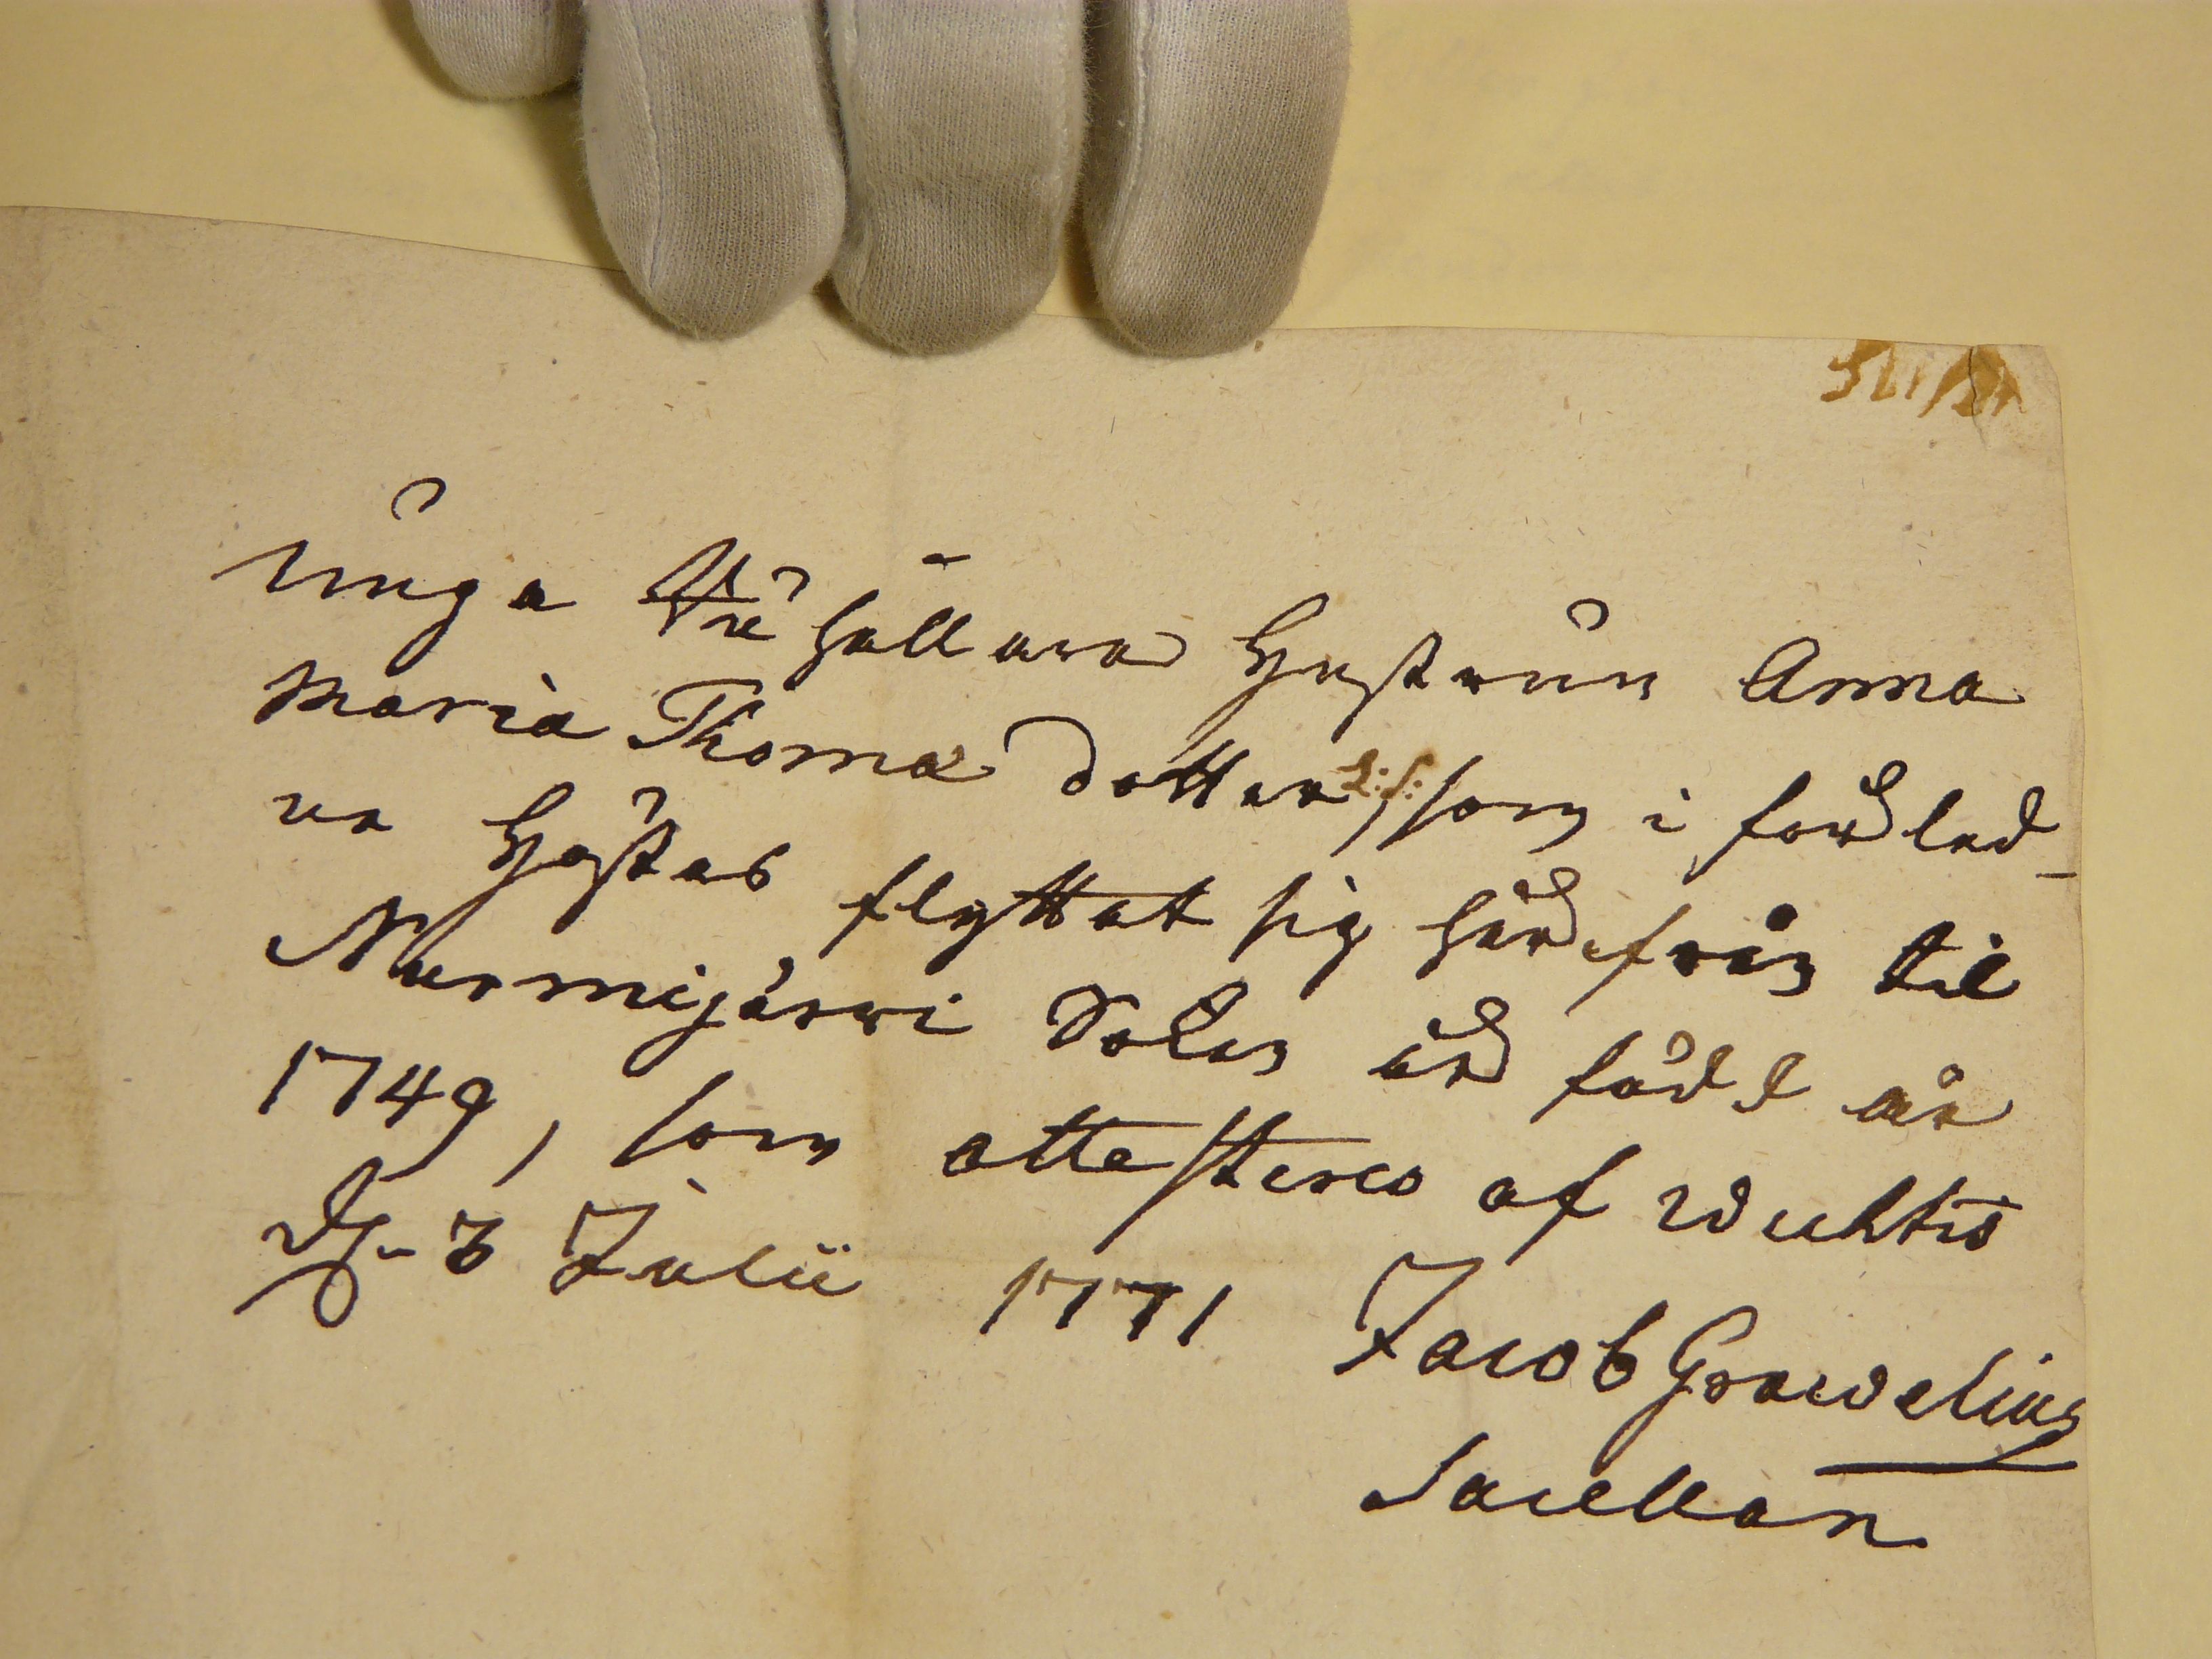 unga Tu hållarens Hustrun Anna
Maria Thomæ Dotter, som i forled-
ne Höstas flyttat sig härifrån til
Nurmijärwi Solen är född år
1749, som attesteres af Wichtis
d. 3 Julii 1771 Jacob Grawelius
Sacellan